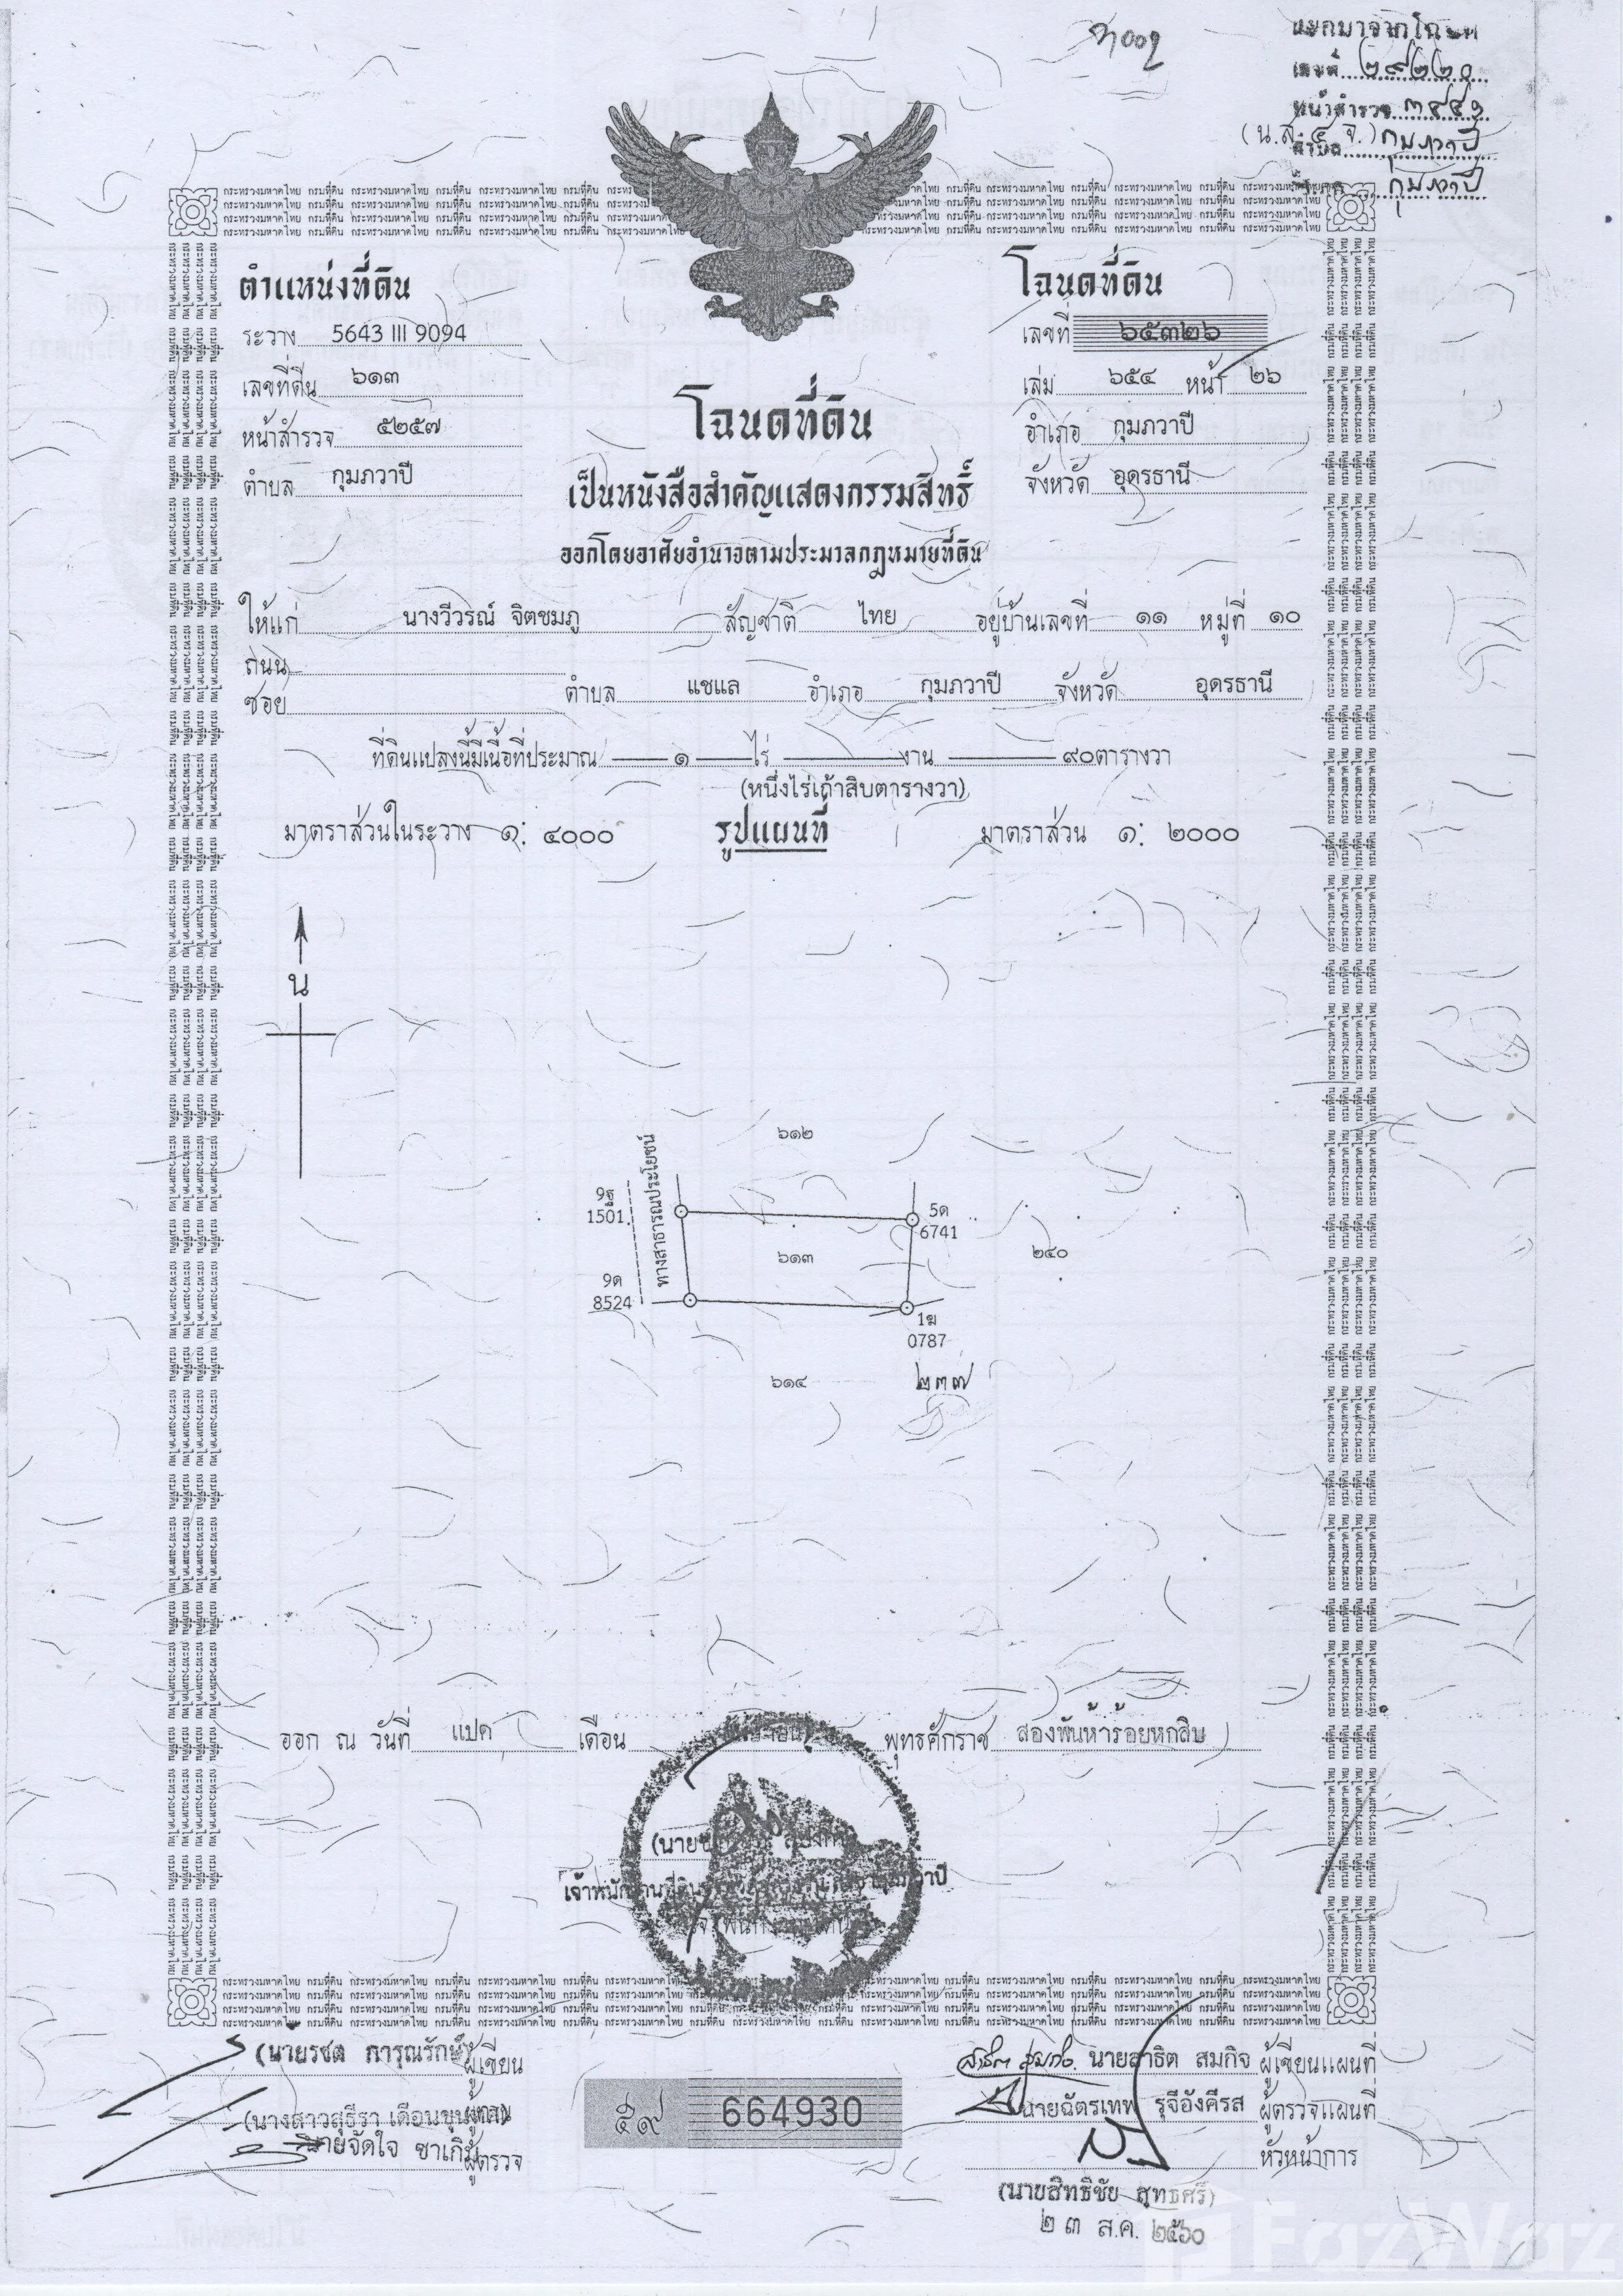 แยกมาจากโฉนด
เลขที่ ๒๙๒๒๐
หน้าสำรวจ ๓๔๔๑
(น.ส. ๔ จ.) ตำบล กุมภวาปี
กุมภวาปี
ตำแหน่งที่ดิน
ระวาง 5643 III 9094
เลขที่ดิน ๖๑๓
หน้าสำรวจ ๕๒๕๗
ตำบล กุมภวาปี
โฉนดที่ดิน
เลขที่ ๖๕๓๒๖
เล่ม ๖๕๔ หน้า ๒๖
อำเภอ กุมภวาปี
จังหวัด อุดรธานี
โฉนดที่ดิน
เป็นหนังสือสำคัญแสดงกรรมสิทธิ์
ออกโดยอาศัยอำนาจตามประมวลกฎหมายที่ดิน
ให้แก่ นางวีวรณ์ จิตชมภู สัญชาติ ไทย อยู่บ้านเลขที่ ๑๑ หมู่ที่ ๑๐
ถนน
ซอย ตำบล แชแล อำเภอ กุมภวาปี จังหวัด อุดรธานี
ที่ดินแปลงนี้มีเนื้อที่ประมาณ ๑ ไร่ งาน ๙๐ตารางวา
(หนึ่งไร่เก้าสิบตารางวา)
มาตราส่วนในระวาง ๑: ๔๐๐๐ รูปแผนที่ มาตราส่วน ๑: ๒๐๐๐
น
๖๑๒
ทางสาธารณประโยชน์
9ฐ
1501
5ด
6741
๖๑๓
๒๔๐
9ด
8524
1ฆ
0787
๖๑๔ ๒๓๗
ออก ณ วันที่ แปด เดือน พุทธศักราช สองพันห้าร้อยหกสิบ
(นายรชต การุณรักษ์) ผู้เขียน
(นางสาวสุธีรา เดือนขุนทด) ผู้ทาน
นายจัดใจ ชาเกิร ผู้ตรวจ
๕๙ 664930
นายสาธิต สมกิจ ผู้เขียนแผนที่
นายฉัตรเทพ รุจีอังคีรส ผู้ตรวจแผนที่
หัวหน้าการ
(นายสิทธิชัย สุทธศรี)
๒ ๓ ส.ค. ๒๕๖๐
FazWaz